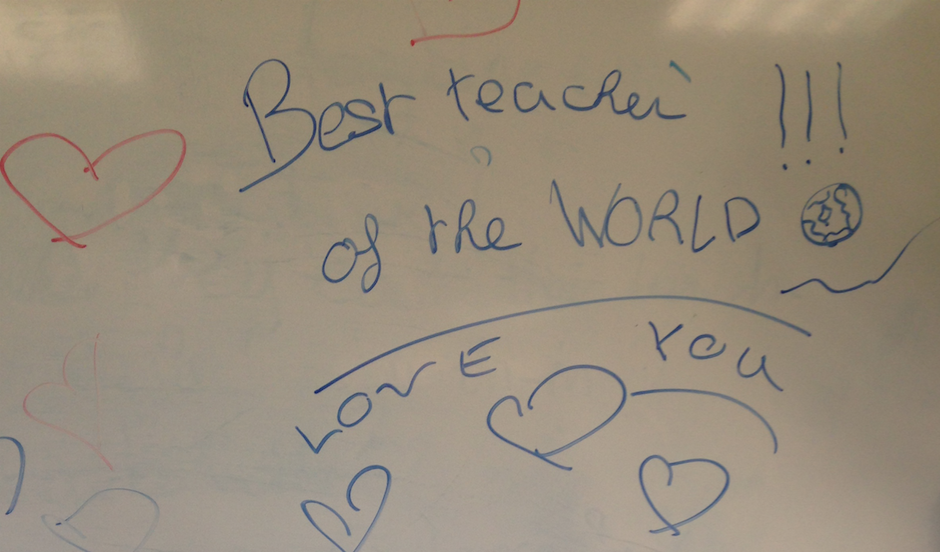 Best teacher !!!
of the WORLD
LOVE YOU